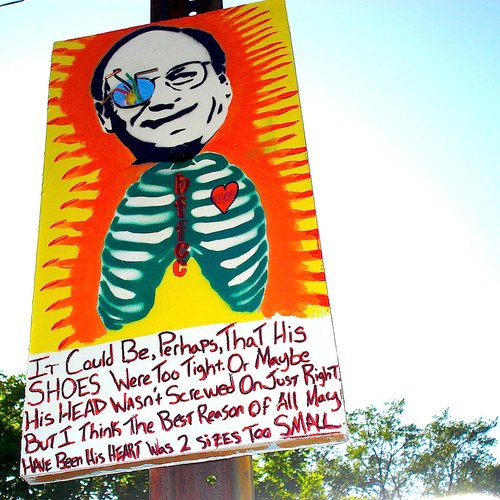 IT Could Be, Perhaps, That His
SHOES Were Too Tight. Or Maybe
His HEAD Wasn't Screwed On Just Right,
But I Think The Best Reason Of All May
HAVE Been His HEART Was 2 sizes Too SMALL